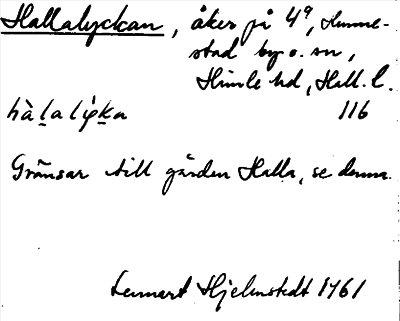 Hallalyckan, åker på 4⁹, Humme-
stad by o. sn,
Himle hd, Hall. l.
116
Gränsar till gården Halla, se denna.
Lennart Hjelmstedt 1961